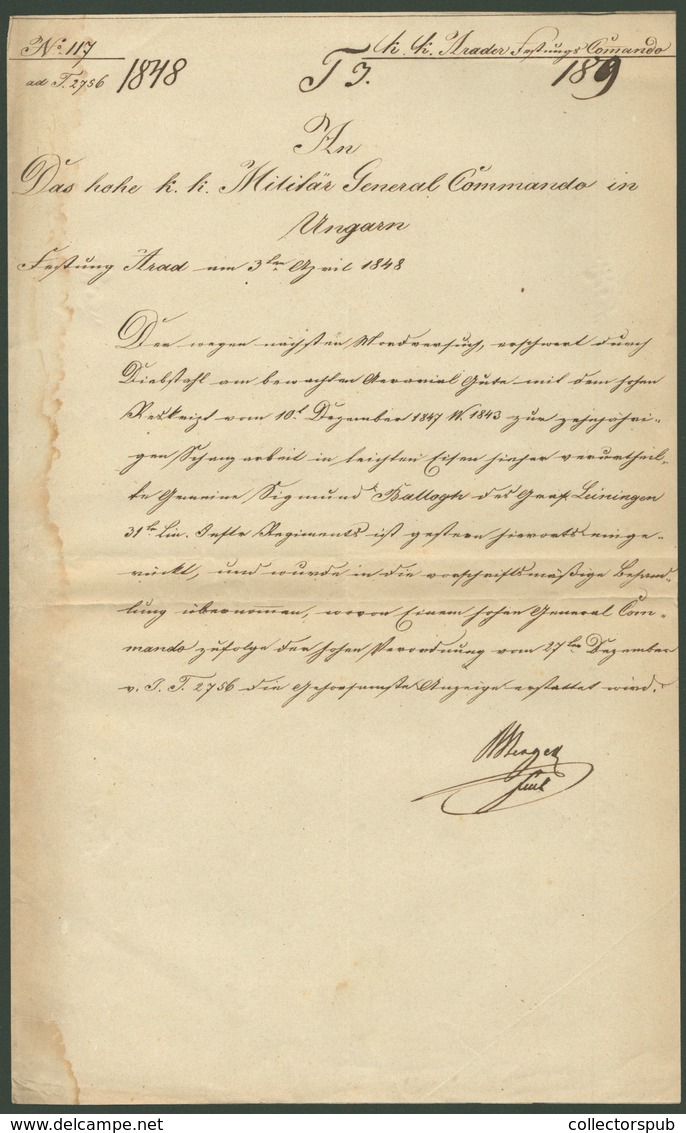 No 117
k. k. Arader Festungs Comando
ad T. 2756 1848 T 3. 189
An
Das hohe k. k. Militär General Commando in
Ungarn
Festung Arad am 3ten April 1848
Der wegen nächsten Mordversuch, erschwert durch
Diebstahl am bewachten Aerarial Gute mit dem hohen
Reskript vom 10t Dezember 1847 W. 1843 zur zehnjähri-
gen Schanzarbeit in leichten Eisen hieher verurtheil-
te Gemeine Sigmund Ballogh des Graf Leiningen
31ten Lin. Inftr Regiments ist gestern hierorts einge-
rückt, und wurde in die vorschriftsmäßige Behand-
lung übernomen, wovon Einem hohen General Com-
mando zufolge der hohen Verordnung vom 27ten Dezember
v. J. T. 2756 die Gehorsamste Anzeige erstattet wird.
collectorspub